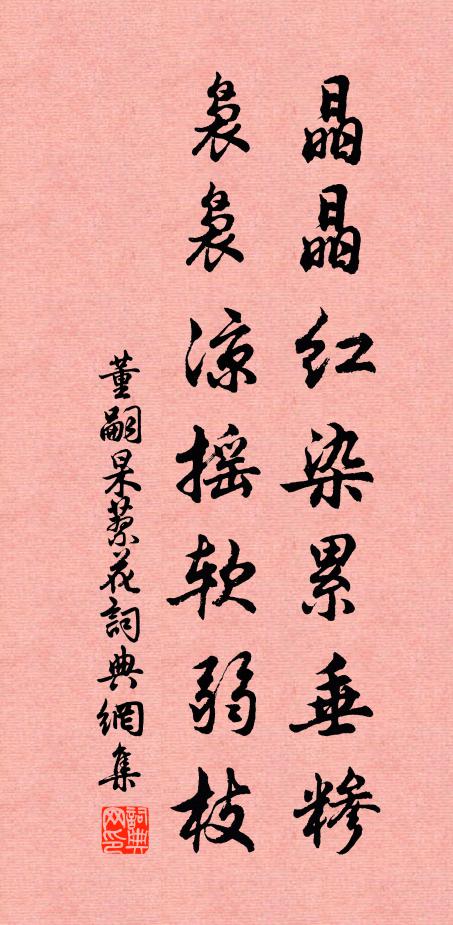 晶晶红染累垂糁
袅袅凉摇软弱枝
董嗣杲蓼花詞典網集
詞典网印